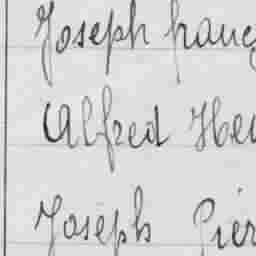 Joseph franç
Alfred Hen
Joseph Pier